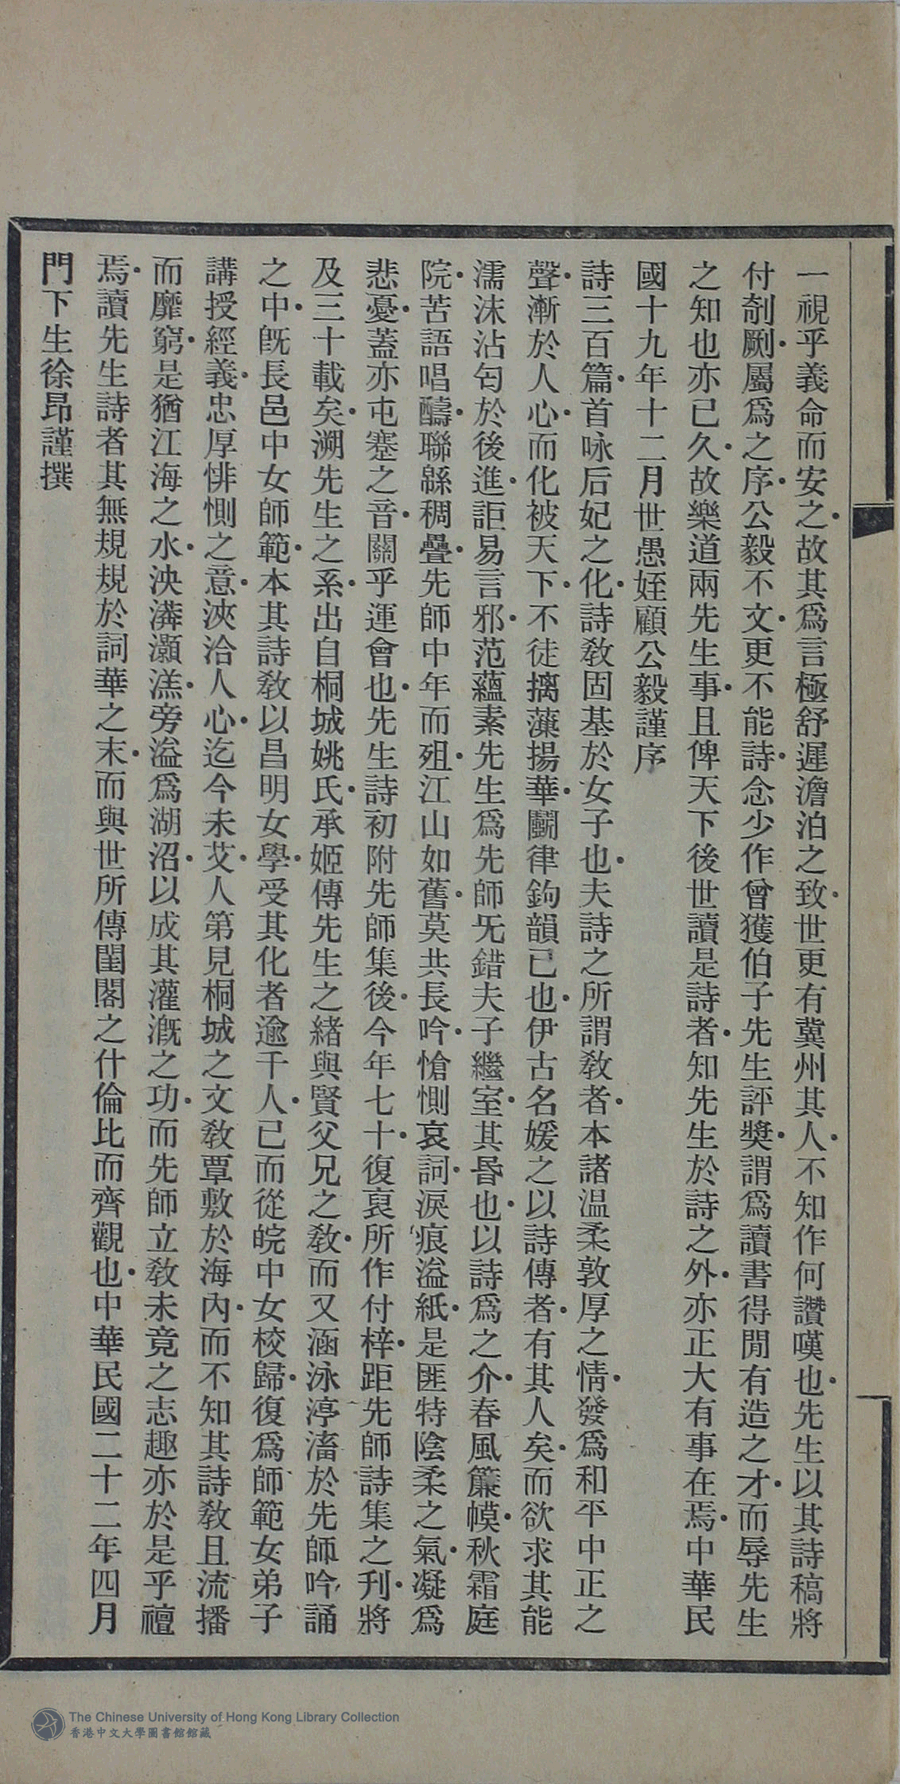 一視乎義命而安之故其爲言極舒遲澹泊之致世更有冀州其人不知作何讚嘆也先生以其詩稿將
付剞劂屬爲之序公毅不文更不能詩念少作曾獲伯子先生評獎謂爲讀書得閒有造之才而辱先生
之知也亦已久故樂道兩先生事且俾天下後世讀是詩者知先生於詩之外亦正大有事在焉中華民
國十九年十二月世愚姪顧公毅謹序
詩三百篇首咏后妃之化詩敎固基於女子也夫詩之所謂敎者本諸温柔敦厚之情發爲和平中正之
聲漸於人心而化被天下不徒摛藻揚華鬭律鉤韻已也伊古名媛之以詩傳者有其人矣而欲求其能
濡沫沾匄於後進詎易言邪范蘊素先生爲先師旡錯夫子繼室其昏也以詩爲之介春風簾幙秋霜庭
院苦語唱醻聯緜稠疊先師中年而殂江山如舊莫共長吟愴惻哀詞淚痕溢紙是匪特陰柔之氣凝爲
悲憂蓋亦屯蹇之音關乎運會也先生詩初附先師集後今年七十復裒所作付梓距先師詩集之刋將
及三十載矣溯先生之系出自桐城姚氏承姬傳先生之緒與賢父兄之敎而又涵泳渟滀於先師吟誦
之中旣長邑中女師範本其詩敎以昌明女學受其化者逾千人已而從皖中女校歸復爲師範女弟子
講授經義忠厚悱惻之意浹洽人心迄今未艾人第見桐城之文敎覃敷於海內而不知其詩敎且流播
而靡窮是猶江海之水泱漭灝溔旁溢爲湖沼以成其灌漑之功而先師立敎未竟之志趣亦於是乎禮
焉讀先生詩者其無規規於詞華之末而與世所傳閨閣之什倫比而齊觀也中華民國二十二年四月
門下生徐昂謹撰
The Chinese University of Hong Kong Library Collection
香港中文大學圖書館館藏